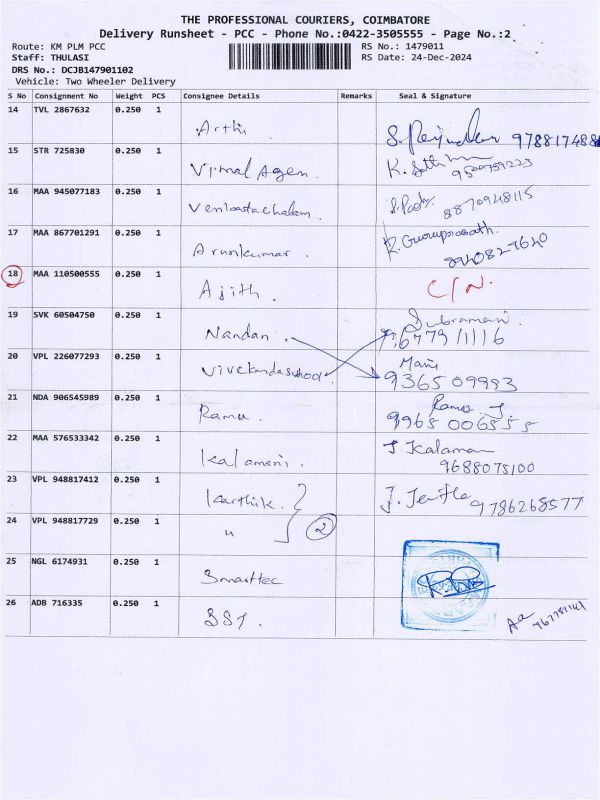 THE PROFESSIONAL COURIERS, COIMBATORE
Delivery Runsheet - PCC - Phone No.:0422-3505555 - Page No.:2
Route: KM PLM PCC
RS No.: 1479011
Staff: THULASI
RS Date: 24-Dec-2024
DRS No.: DCJB147901102
Vehicle: Two Wheeler Delivery
S No Consignment No Weight PCS Consignee Details Remarks Seal & Signature
14 TVL 2867632 0.250 1 Arthi
15 STR 725830 0.250 1 Vimal Agen. 9509759223
16 MAA 945077183 0.250 1 Venkatachalam. 8870948115
17 MAA 867701291 0.250 1 Arunkumar. R. Guruprasath. 8940827620
18 MAA 110500555 0.250 1 Ajith. C/N.
19 SVK 60504750 0.250 1 Nandan. Subramani.
20 VPL 226077293 0.250 1 Mani 9365 09993
21 NDA 906545989 0.250 1 Ramu. Ramu. J. 9965 006555
22 MAA 576533342 0.250 1 Kalamani. J. Kalaman 9688075100
23 VPL 948817412 0.250 1 Karthik. 9786268577
24 VPL 948817729 0.250 1 " 2
25 NGL 6174931 0.250 1 Smarttec
26 ADB 716335 0.250 1 SST.